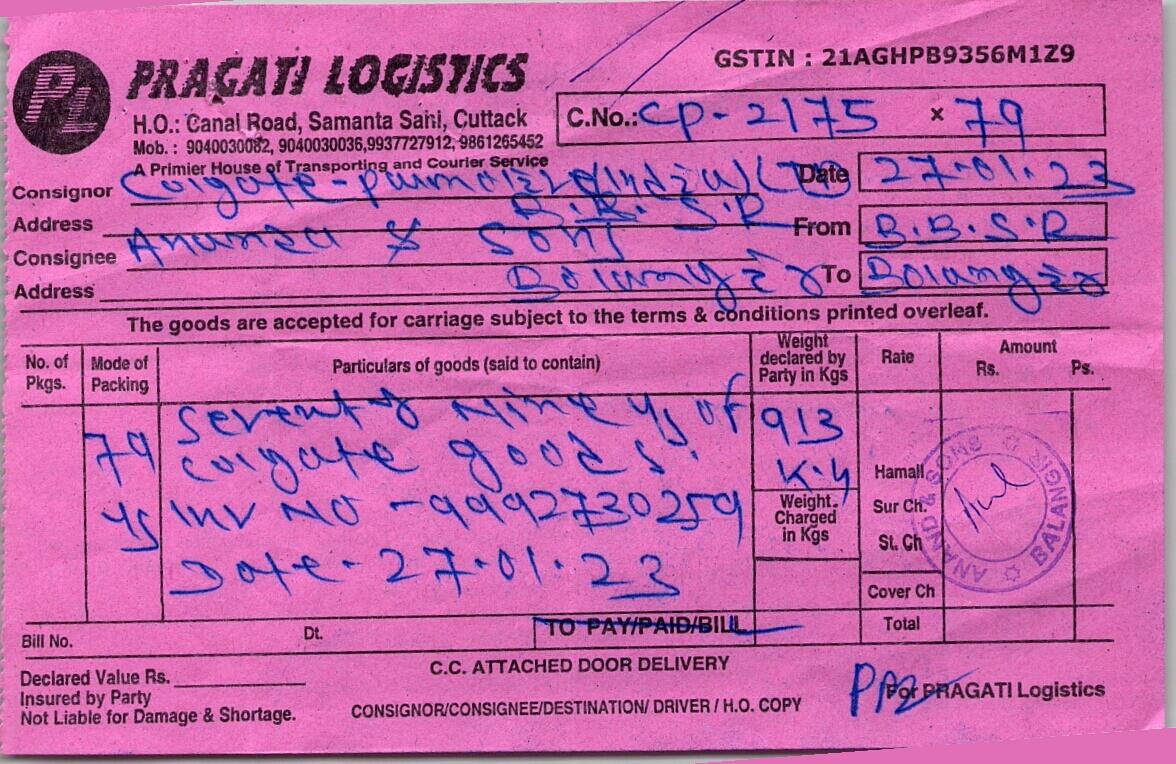 PL
PRAGATI LOGISTICS
GSTIN : 21AGHPB9356M1Z9
H.O.: Canal Road, Samanta Sahi, Cuttack
Mob. : 9040030082, 9040030036,9937727912, 9861265452
A Primier House of Transporting and Courier Service
C.No.: CP-2175 x 79
Consignor Colgate-
Date 27.01.23
Address B.B.S.R
From B.B.S.R
Consignee & Sons
Address Bolangir
To Bolangir
The goods are accepted for carriage subject to the terms & conditions printed overleaf.
No. of Pkgs.
Mode of Packing
Particulars of goods (said to contain)
Weight declared by Party in Kgs
Rate
Amount
Rs. Ps.
79
Seventy Nine of
Colgate goods.
Inv No -9992730259
Date-27.01.23
913
Weight. Charged in Kgs
Hamali
Sur Ch.
St. Ch
Cover Ch
Total
ANAND & SONS
BALANGIR
Bill No. Dt.
TO PAY/PAID/BILL
Declared Value Rs.
Insured by Party
Not Liable for Damage & Shortage.
C.C. ATTACHED DOOR DELIVERY
CONSIGNOR/CONSIGNEE/DESTINATION/ DRIVER / H.O. COPY
For PRAGATI Logistics